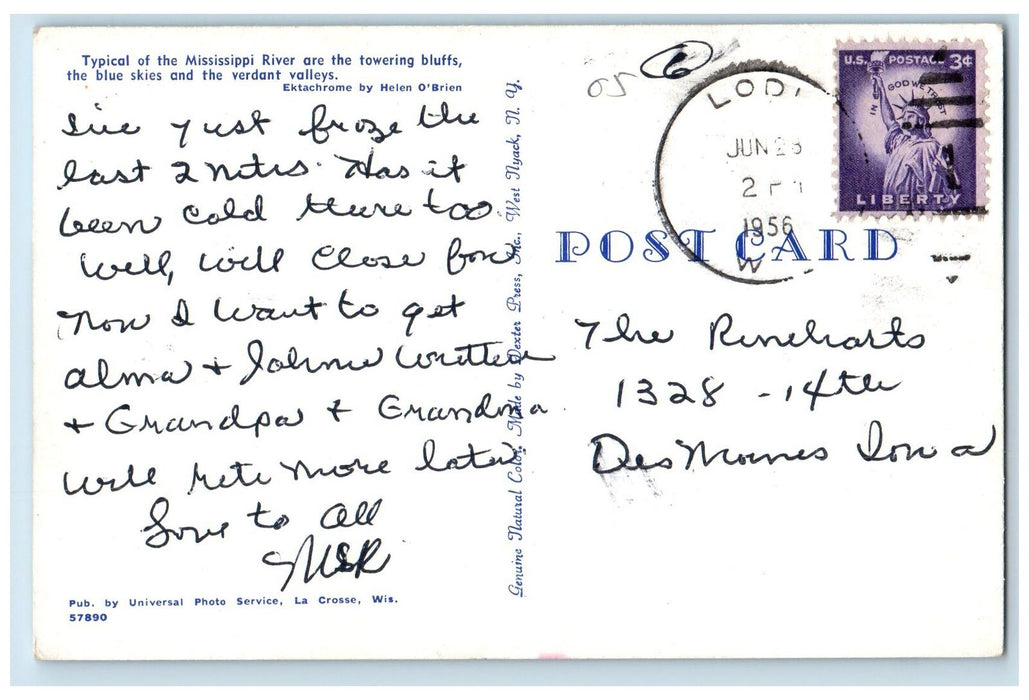 Typical of the Mississippi River are the towering bluffs,
the blue skies and the verdant valleys.
Ektachrome by Helen O'Brien
just froze the
last 2 nites. Has it
been cold there too.
Well, will close for
now I want to get
Alma + Johnie written
+ Grandpa + Grandma
will rite more later
Love to all
Pub. by Universal Photo Service, La Crosse, Wis.
57890
Genuine Natural Color Made by Dexter Press, Inc., West Nyack, N. Y.
6
LODI
JUN 28
2 P
1956
W
U.S. POSTAGE 3¢
IN GOD WE TRUST
LIBERTY
POST CARD
The Rineharts
1328 - 14th
Des Moines Iowa